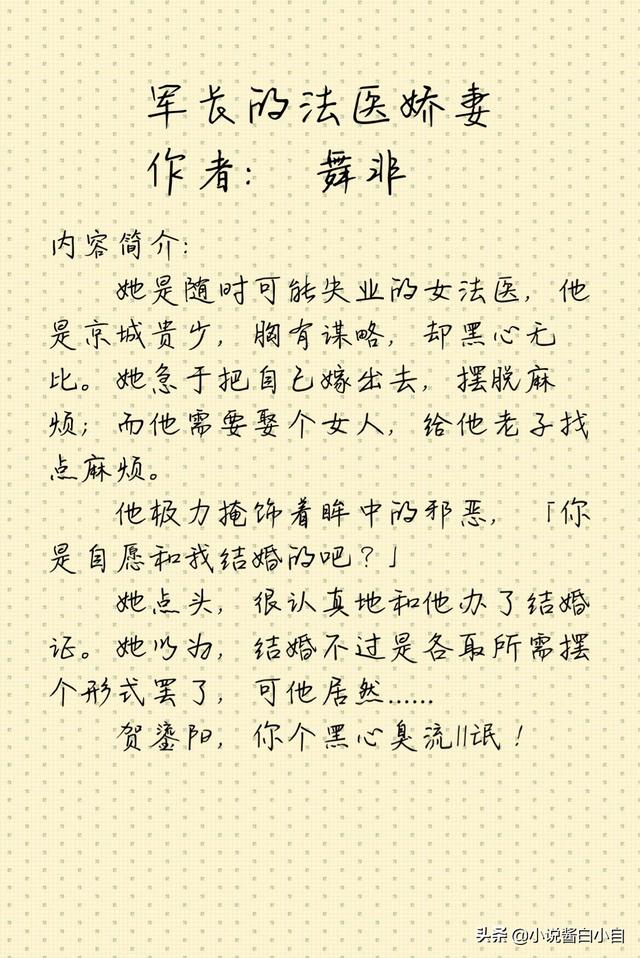 军长的法医娇妻
作者： 舞非
内容简介：
她是随时可能失业的女法医，他
是京城贵少，胸有谋略，却黑心无
比。她急于把自己嫁出去，摆脱麻
烦；而他需要娶个女人，给他老子找
点麻烦。
他极力掩饰着眸中的邪恶，「你
是自愿和我结婚的吧？」
她点头，很认真地和他办了结婚
证。她以为，结婚不过是各取所需摆
个形式罢了，可他居然……
贺鎏阳，你个黑心臭流||氓！
头条 @小说酱白小白